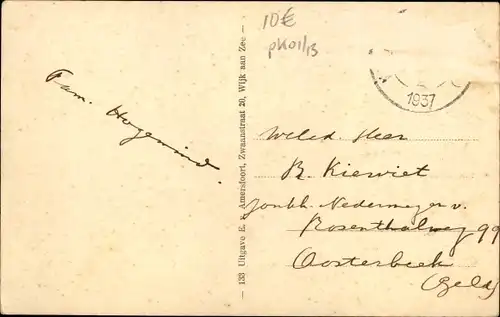 10€
pk01/13
1937
Fam. Hoogewind.
133 Uitgave E. v. Amersfoort, Zwaanstraat 20, Wijk aan Zee
Weled. Heer
B. Kiewiet
Jonkh. Nedermeyer v.
Rosenthalweg 99
Oosterbeek
(Geld)